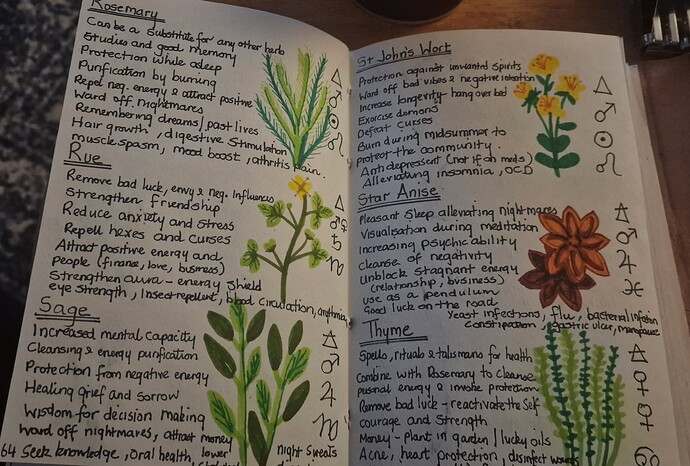 Rosemary
Can be a substitute for any other herb
Studies and good memory
Protection while asleep
Purification by burning
Repel neg. energy & attract positive
Ward off nightmares
Remembering dreams/past lives
Hair growth, digestive stimulation
muscle spasm, mood boost, athritis pain.
Rue
Remove bad luck, envy & neg. influences
Strengthen friendship
Reduce anxiety and stress
Repell hexes and curses
Attract positive energy and
people (finance, love, business)
Strengthen aura - energy shield
eye strength, insect repellent, blood circulation,
Sage
Increased mental capacity
Cleansing & energy purification
Protection from negative energy
Healing grief and sorrow
Wisdom for decision making
Ward off nightmares, attract money
64 Seek knowledge, Oral health, lower night sweats
St John's Wort
Protection against unwanted spirits
Ward off bad vibes & negative intention
Increase longevity - hang over bed
Exorcise demons
Defeat curses
Burn during midsummer to
protect the community.
Antidepressent (not if on meds)
Alleviating insomnia, OCD
Star Anise
Pleasant Sleep alleviating nightmares
Visualisation during meditation
increasing psychic ability
Cleanse of negativity
Unblock stagnant energy
(relationship, business)
use as a pendulum
Good luck on the road
Yeast infections, flu, bacterial infection
Constipation, gastric ulcer, menopause
Thyme
Spells, rituals & talismans for health
Combine with Rosemary to cleanse
personal energy & invoke protection
Remove bad luck - reactivate the self
courage and Strength
Money - plant in garden / lucky oils
Acne, heart protection, disinfect wounds